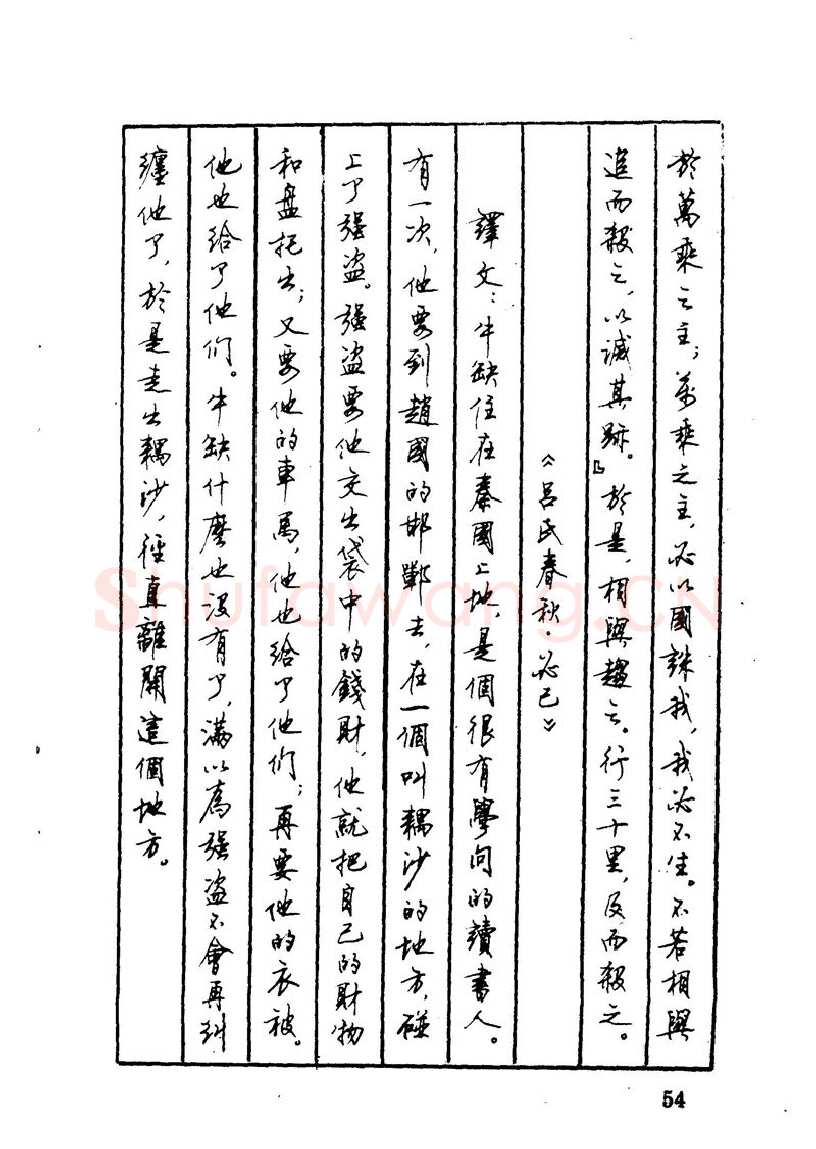 於萬乘之主；萬乘之主，必以國誅我，我必不生。不若相與
追而殺之，以滅其跡。』於是，相與趨之。行三十里，及而殺之。
《呂氏春秋·必己》
譯文：牛缺住在秦國上地，是個很有學問的讀書人。
有一次，他要到趙國的邯鄲去，在一個叫耦沙的地方，碰
上了强盗。强盗要他交出袋中的錢財，他就把自己的財物
和盘托出；又要他的車馬，他也給了他們；再要他的衣被。
他也给了他们。牛缺什麽也没有了，满以為强盗不會再糾
纏他了，於是走出耦沙，徑直離開這個地方。
54
Shufawang.CN